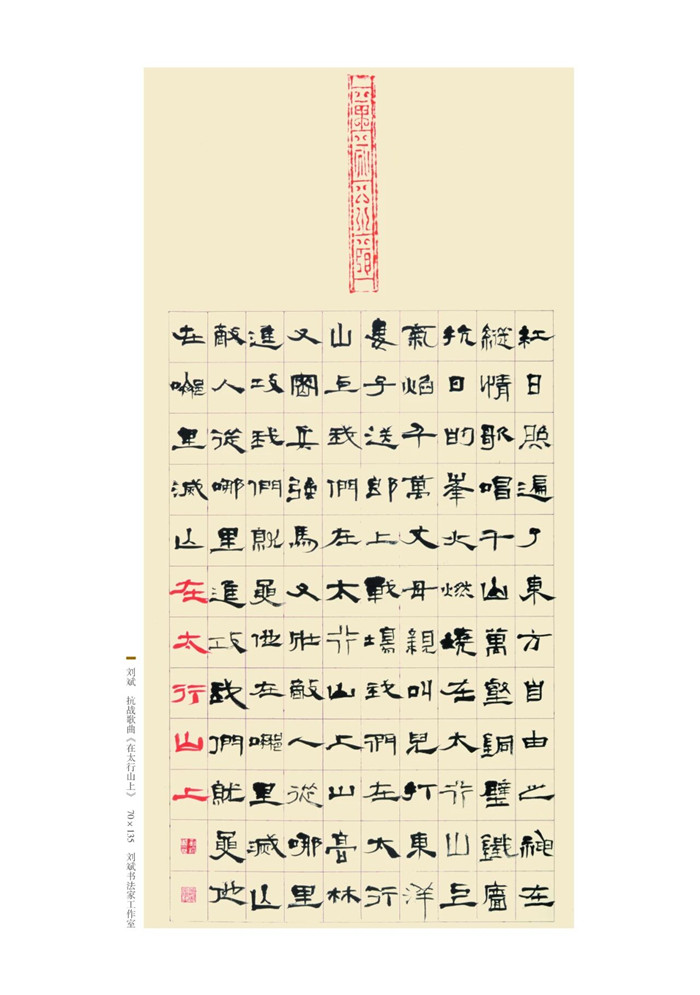 紅日照遍了東方自由之神在
縱情歌唱千山萬壑銅壁鐵廧
抗日的峯火燃燒在太行山上
氣焰千萬丈母親叫兒打東洋
妻子送郎上戰場我們在太行
山上我們在太行山上山高林
又密兵強馬又壯敵人從哪里
進攻我們就要他在哪里滅亡
敵人從哪里進攻我們就要他
在哪里滅亡在太行山上
刘斌 抗战歌曲《在太行山上》 70×135 刘斌书法家工作室